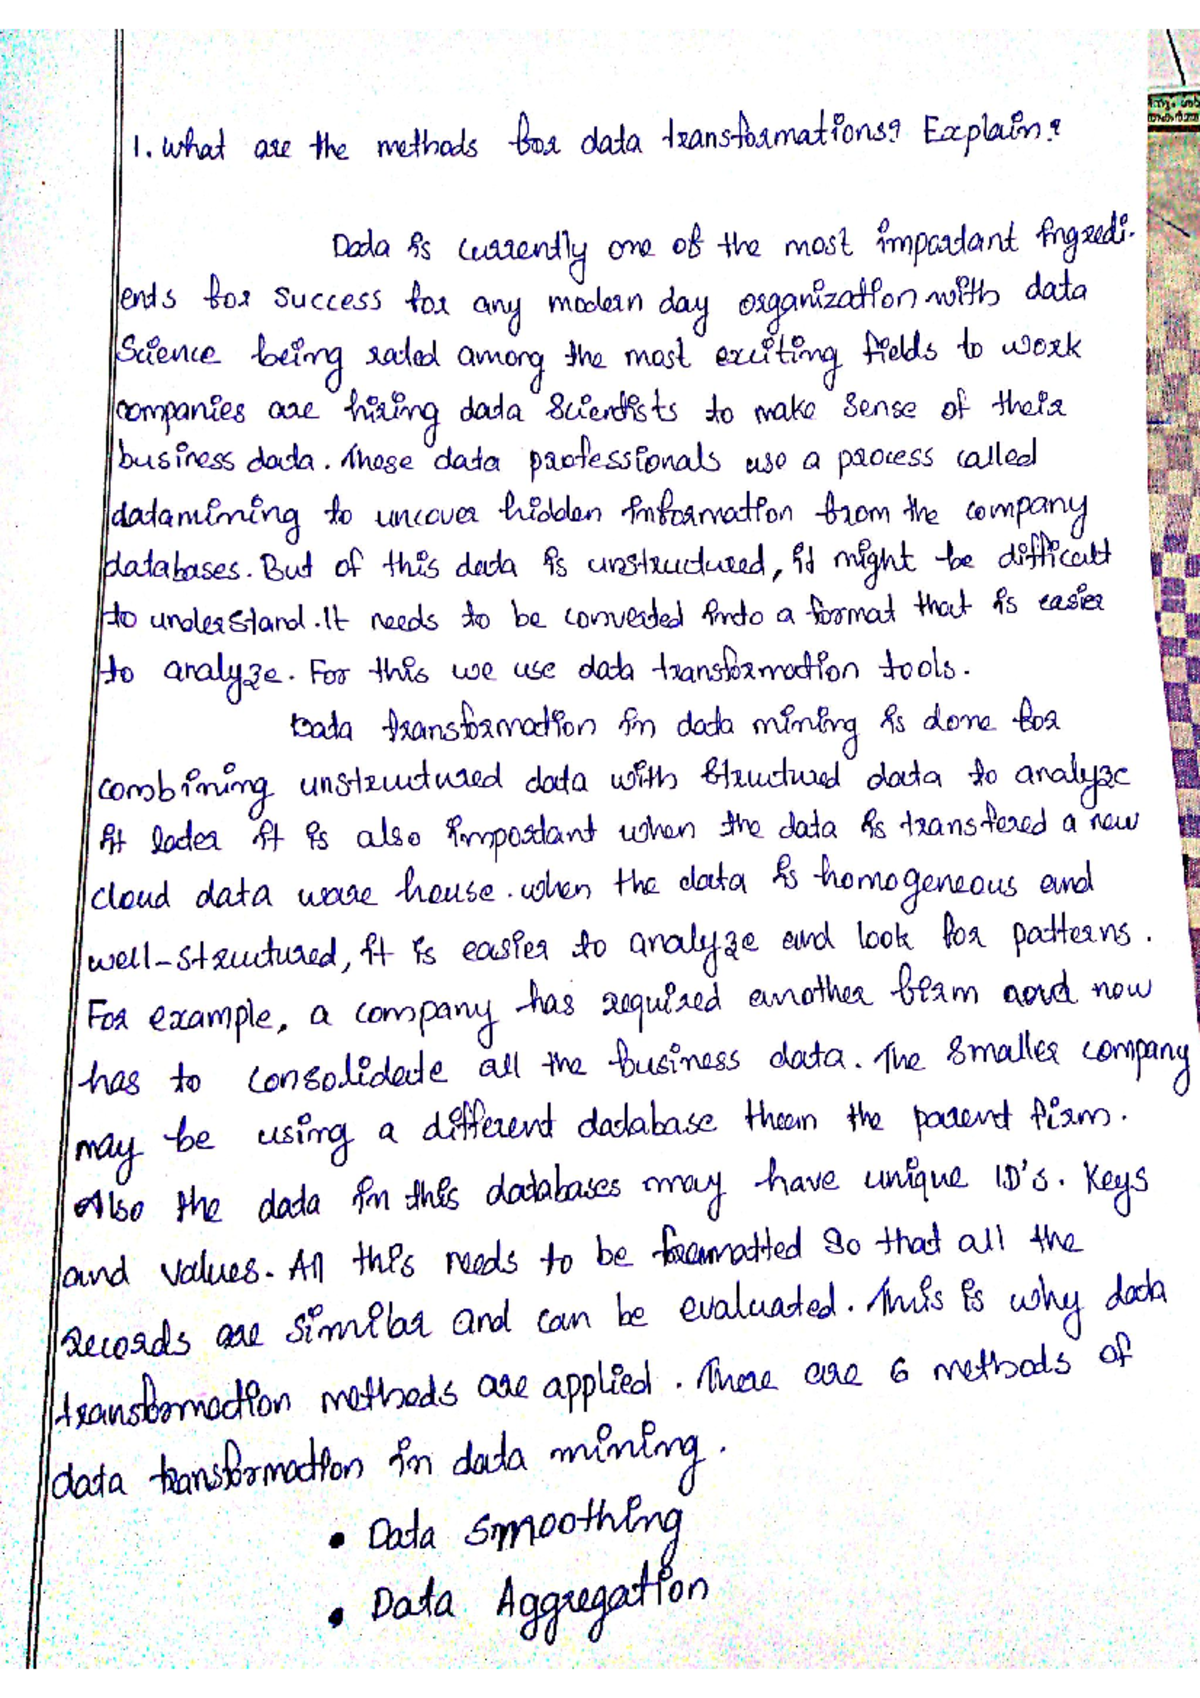 1. What are the methods for data transformations? Explain?
Data is currently one of the most important ingredi-
ents for success for any modern day organization with data
Science being rated among the most exciting fields to work
companies are hiring data scientists to make sense of their
business data. These data professionals use a process called
datamining to uncover hidden information from the company
databases. But of this data is unstructured, it might be difficult
to understand. It needs to be converted into a format that is easier
to analyze. For this we use data transformation tools.
Data transformation in data mining is done for
combining unstructured data with structured data to analyze
it later it is also important when the data is transfered a new
cloud data ware house. when the data is homogeneous and
well-structured, it is easier to analyze and look for patterns.
For example, a company has required another firm and now
has to consolidate all the business data. The smaller company
may be using a different database than the parent firm.
Also the data in this databases may have unique ID's. Keys
and values. All this needs to be formatted so that all the
records are similar and can be evaluated. This is why data
transformation methods are applied. There are 6 methods of
data transformation in data mining.
• Data Smoothing
• Data Aggregation